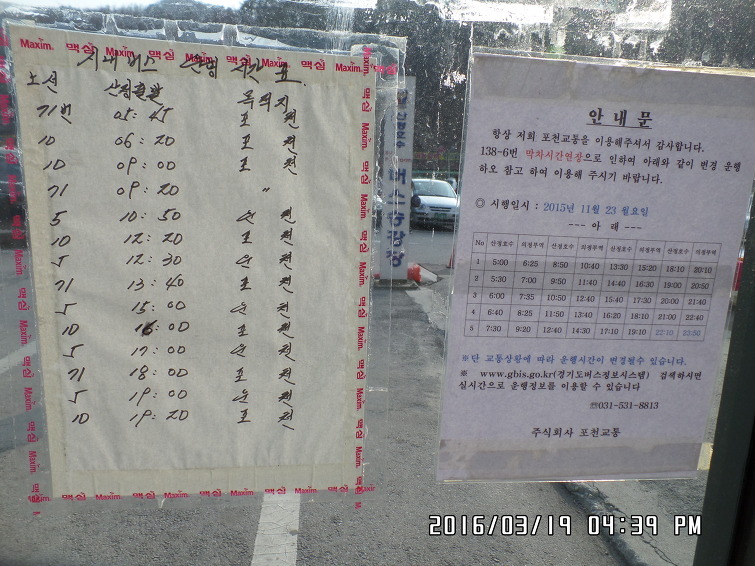 시내버스 운행 시간표
노선 산정출발 목적지
71번 05:45 포천
10 06:20 포천
10 09:00 포천
71 09:20 "
5 10:50 운천
10 12:20 포천
5 12:30 운천
71 13:40 포천
5 15:00 운천
10 16:00 포천
5 17:00 운천
71 18:00 포천
5 19:00 운천
10 19:20 포천
Maxim. 맥심
버스승강장
안내문
항상 저희 포천교통을 이용해주셔서 감사합니다.
138-6번 막차시간연장으로 인하여 아래와 같이 변경 운행
하오 참고 하여 이용해 주시기 바랍니다.
◎ 시행일시 : 2015년 11월 23 월요일
--- 아 래 ---
No 산정호수 의정부역 산정호수 의정부역 산정호수 의정부역 산정호수 의정부역
1 5:00 6:25 8:50 10:40 13:30 15:20 18:10 20:10
2 5:30 7:00 9:50 11:40 14:40 16:30 19:00 20:50
3 6:00 7:35 10:50 12:40 15:40 17:30 20:00 21:40
4 6:40 8:25 11:50 13:40 16:20 18:10 21:00 22:40
5 7:30 9:20 12:40 14:30 17:10 19:10 22:10 23:50
※단 교통상황에 따라 운행시간이 변경될수 있습니다.
※ www.gbis.go.kr(경기도버스정보시스템) 검색하시면
실시간으로 운행정보를 이용할 수 있습니다
☎031-531-8813
주식회사 포천교통
2016/03/19 04:39 PM